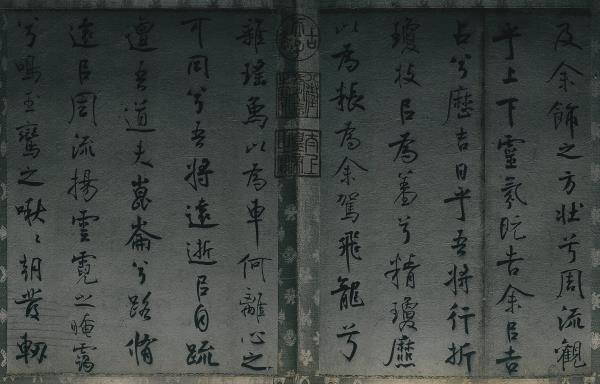 及余飾之方壯兮周流觀
乎上下靈氛既告余㠯吉
占兮歷吉日乎吾將行折
瓊枝㠯為羞兮精瓊爢
以為粻為余駕飛龍兮
雜瑤象以為車何離心之
可同兮吾將遠逝㠯自疏
邅吾道夫崑崙兮路脩
遠㠯周流揚雲霓之晻靄
兮鳴玉鸞之啾〻朝發軔